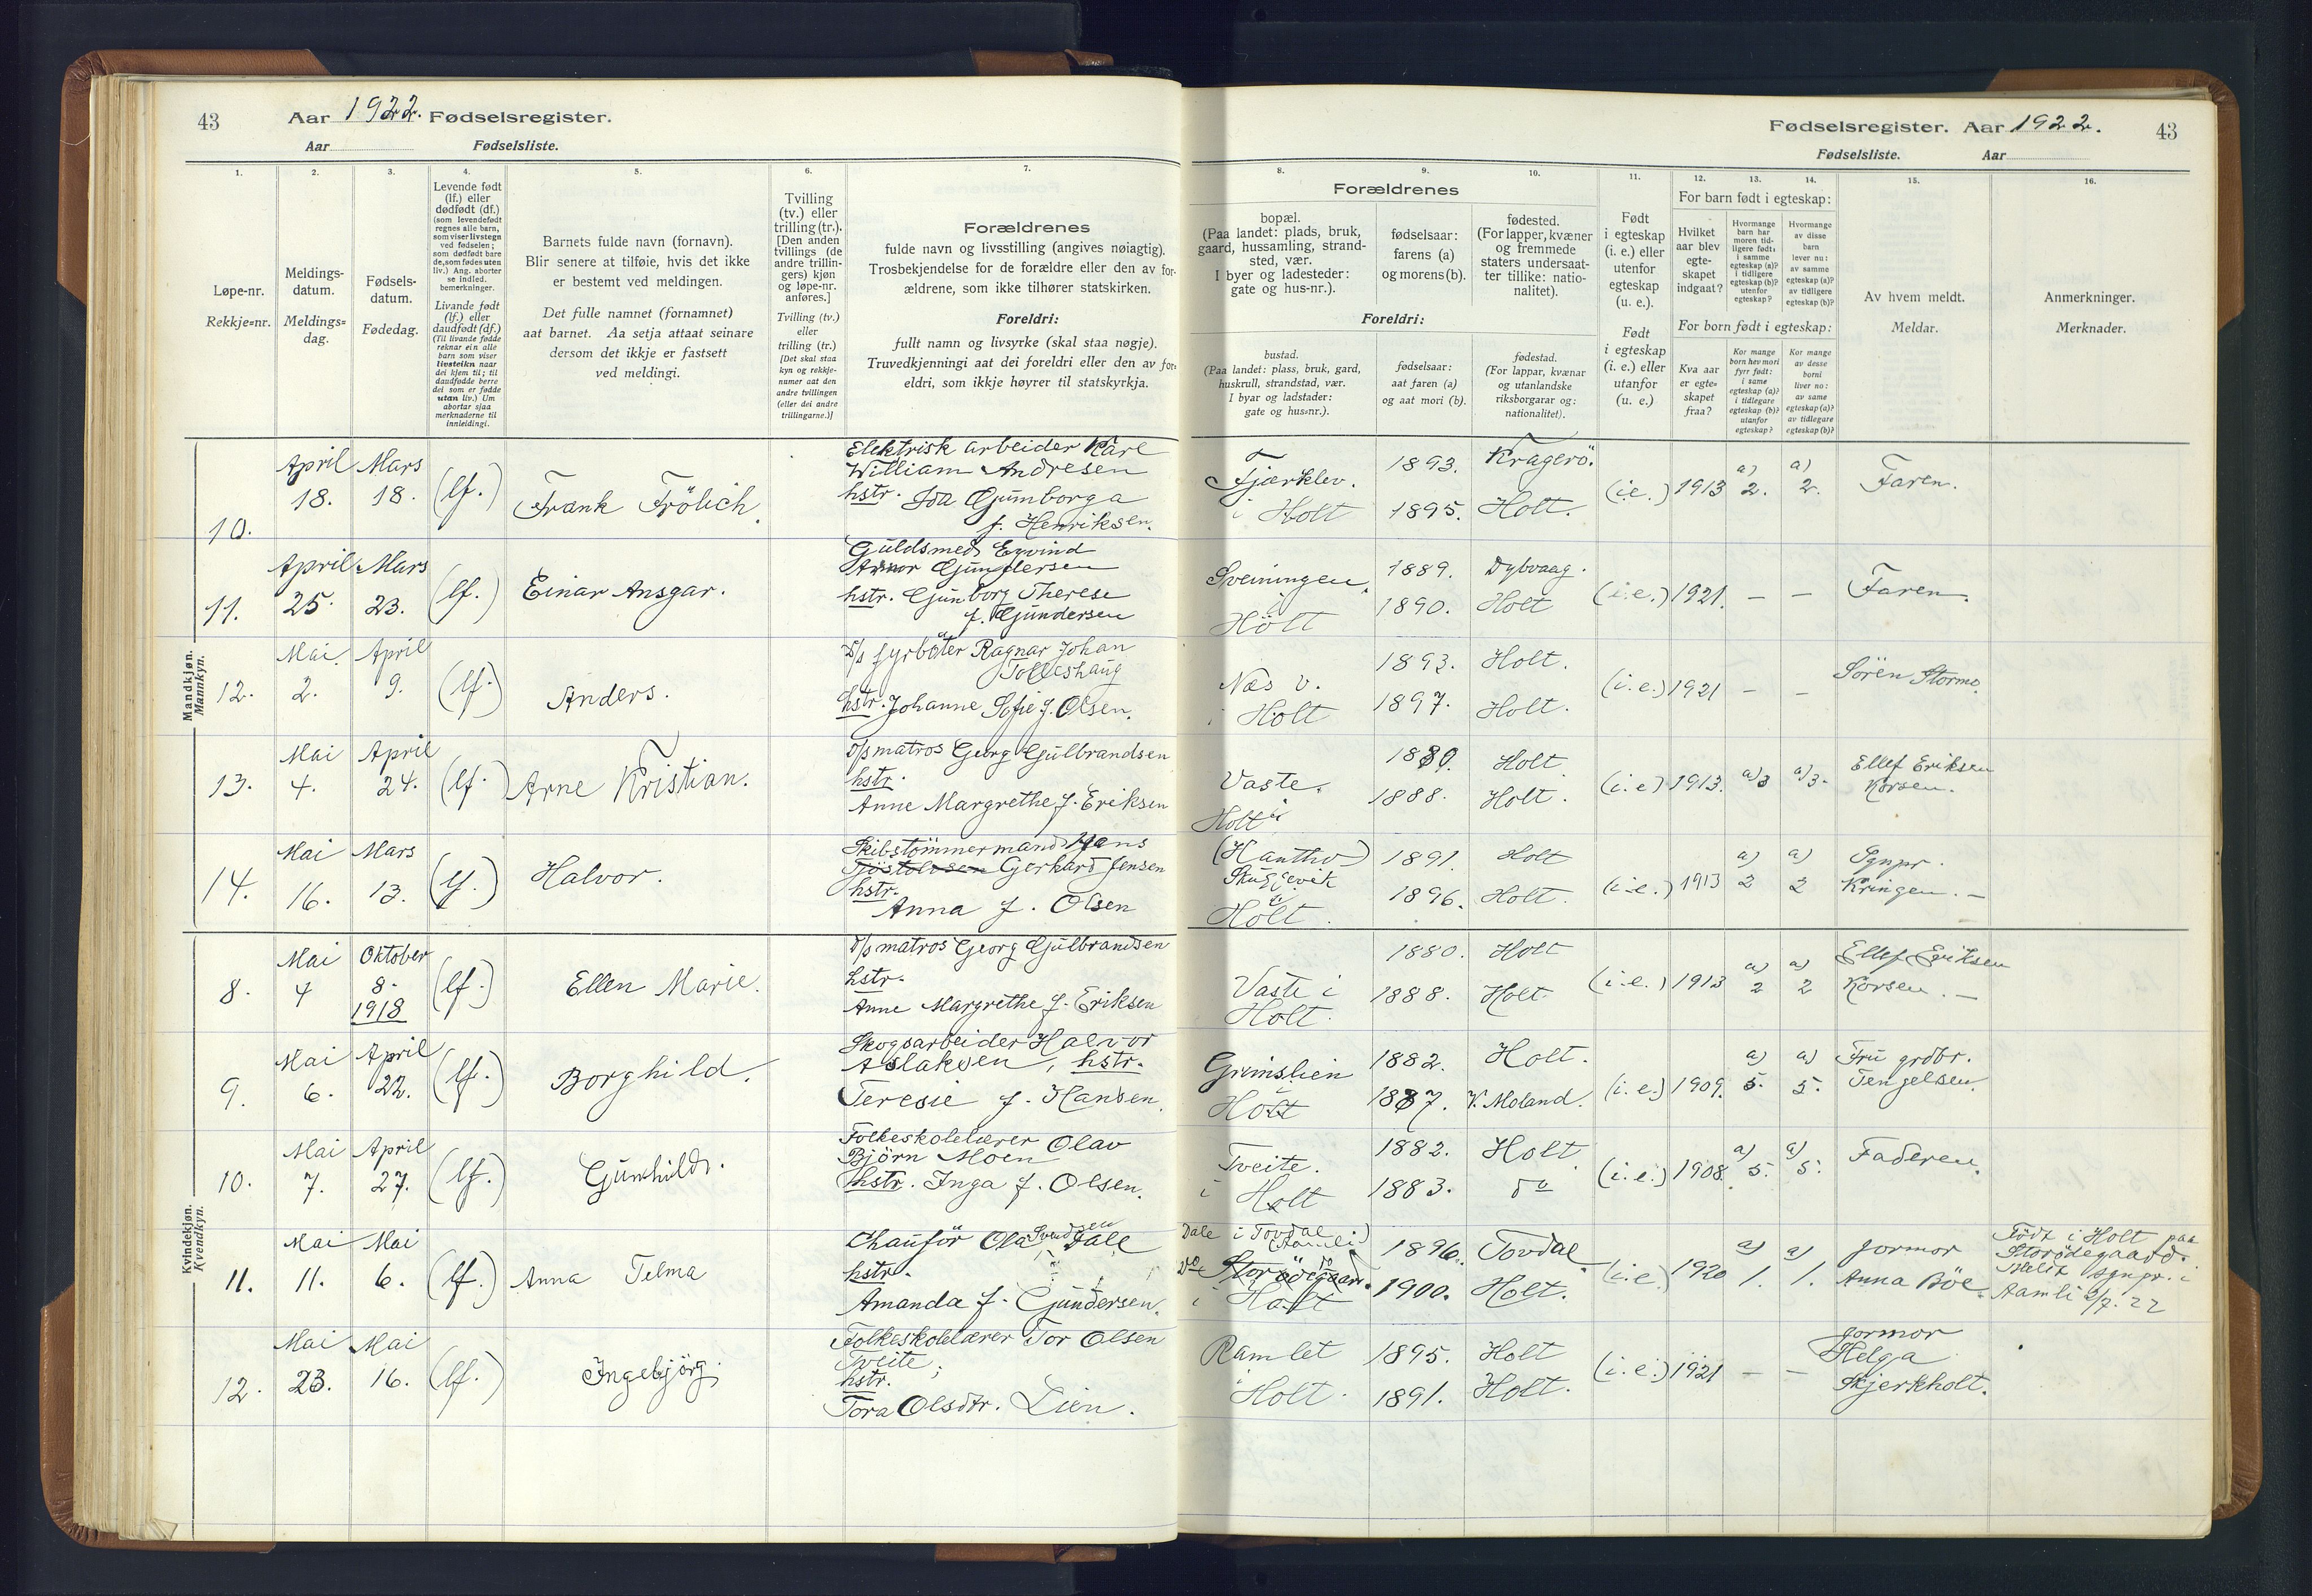 43
Aar 1922. Fødselsregister.
Aar Fødselsliste.
Fødselsregister. Aar 1922.
43
Fødselsliste. Aar
1.
Løpe-nr.
Rekkje=nr.
2.
Meldings-
datum.
Meldings=
dag.
3.
Fødsels-
datum.
Fødedag.
4.
Levende født
(lf.) eller
dødfødt (df.)
(som levendefødt
regnes alle barn,
som viser livstegn
ved fødselen;
som dødfødt bare
de, som fødes uten
liv.) Ang. aborter
se indled.
bemerkninger.
Livande født
(lf.) eller
daudfødt (df.)
(Til livande fødde
reknar ein alle
barn som viser
livsteikn naar
dei kjem til; til
daudfødde berre
dei som er fødde
utan liv.) Um
abortar sjaa
merknaderne til
innleidingi.
5.
Barnets fulde navn (fornavn).
Blir senere at tilføie, hvis det ikke
er bestemt ved meldingen.
Det fulle namnet (fornamnet)
aat barnet. Aa setja attaat seinare
dersom det ikkje er fastsett
ved meldingi.
6.
Tvilling
(tv.) eller
trilling (tr.).
[Den anden
tvillings (de
andre trillin-
gers) kjøn
og løpe-nr.
anføres.]
Tvilling (tv.)
eller
trilling (tr.)
[Det skal staa
kyn og rekkje-
numer aat den
andre tvillingen
(eller dei andre
trillingarne.)]
7.
Forældrenes
fulde navn og livsstilling (angives nøiagtig).
Trosbekjendelse for de forældre eller den av for-
ældrene, som ikke tilhører statskirken.
Foreldri:
fullt namn og livsyrke (skal staa nøgje).
Truvedkjenningi aat dei foreldri eller den av for-
eldri, som ikkje høyrer til statskyrkja.
8.
Forældrenes
bopæl.
(Paa landet: plads, bruk,
gaard, hussamling, strand-
sted, vær.
I byer og ladesteder:
gate og hus-nr.).
Foreldri:
bustad.
(Paa landet: plass, bruk, gard,
huskrull, strandstad, vær.
I byar og ladstader:
gate og hus=nr.).
9.
fødselsaar:
farens (a)
og morens (b).
fødselsaar:
aat faren (a)
og aat mori (b).
10.
fødested.
(For lapper, kvæner
og fremmede
staters undersaat-
ter tillike: natio-
nalitet).
fødestad.
(For lappar, kvænar
og utanlandske
riksborgarar og:
nationalitet).
11.
Født
i egteskap
(i. e.) eller
utenfor
egteskap
(u. e.).
Født
i egteskap
(i. e.) eller
utanfor
(u. e.)
12.
For barn født i egteskap:
Hvilket
aar blev
egte-
skapet
indgaat?
For born født i egteskap:
Kva aar
er egte=
skapet
fraa?
13.
Hvormange
barn har
moren tid-
ligere født:
i samme
egteskap (a)?
i tidligere
egteskap (b)?
utenfor
egteskap?
Kor mange
born hev mori
fyrr født:
i same
egteskap (a)?
i tidlegare
egteskap (b)?
utanfor
egteskap?
14.
Hvormange
av disse
barn
lever nu:
av samme
egteskap (a)?
av tidligere
egteskap (b)?
Kor mange
av desse
borni
liver no:
av same
egteskap (a)?
av tidlegare
egteskap (b)?
15.
Av hvem meldt.
Meldar.
16.
Anmerkninger.
Merknader.
Mandkjøn.
Mannkyn.
10.
April 18.
Mars 18.
(lf.)
Frank Frölich.
Elektrisk arbeider Karl
William Andresen
hstr. Ida Gunborga
f. Henriksen.
Fjærklev.
i Holt
1893.
1895.
Kragerö.
Holt.
(i.e.)
1913
a) 2.
a) 2.
Faren.
11.
April 25.
Mars 23.
(lf.)
Einar Ansgar.
Guldsmed Eyvind
Gundersen
hstr. Gunborg Therese
f. Gundersen
Sveiningen.
i
Holt
1889.
1890.
Dybvaag.
Holt
(i.e.)
1921.
—
—
Faren.
12.
Mai 2.
April 9.
(lf.)
Anders.
D/s fyrböter Ragnar Johan
Tolleshaug
hstr. Johanne Sofie f. Olsen.
Næs v.
i Holt
1893.
1897.
Holt.
Holt.
(i.e.)
1921
—
—
Sören Stormo.
13.
Mai 4.
April 24.
(lf.)
Arne Kristian.
D/s matros Georg Gulbrandsen
hstr.
Anne Margrethe f. Eriksen
Vaste.
i
Holt
1880.
1888.
Holt
Holt.
(i.e)
1913.
a) 3
a) 3.
Ellef Eriksen
Korsen.
14.
Mai 16.
Mars 13.
(lf.)
Halvor.
Skibstömmermand Hans
Tjöstolvsen Gerhard Jensen
hstr.
Anna f. Olsen
(Hantho)
Skuggevik
i
Holt.
1891.
1896.
Holt
Holt.
(i.e.)
1913
a) 2
a) 2
Sgnpr.
Kringen. —
Kvindekjøn.
Kvendkyn.
8.
Mai 4
Oktober
8.
1918
(lf.)
Ellen Marie.
D/s matros Georg Gulbrandsen
hstr.
Anne Margrethe f. Eriksen
Vaste i
Holt.
1880.
1888.
Holt
Holt.
(i.e.)
1913
a) 2
a) 2
Ellef Eriksen
Korsen. —
9.
Mai 6.
April 22.
(lf.)
Borghild.
Skogsarbeider Halvor
Aslaksen, hstr.
Teresie f. Hansen.
Grimslien
i
Holt
1882.
1887.
Holt.
V. Moland.
(i.e.)
1909.
a) 5.
a) 5.
Fru grdbr.
Tengelsen.
10.
Mai 7.
April 27.
(lf.)
Gunhild.
Folkeskolelærer Olav
Björn Moen
hstr. Inga f. Olsen.
Tveite.
i Holt
1882.
1883.
Holt
do
(i.e.)
1908.
a) 5.
a) 5.
Faderen.
11.
Mai 11.
Mai 6.
(lf.)
Anna Telma
Chauför Ola Svendsen Dale
hstr.
Amanda f. Gundersen.
Dale i Tovdal
(Aamli)
do Storödegaard.
i Holt
1896.
1900.
Tovdal.
Holt.
(i.e.)
1920
a) 1.
a) 1.
Jormor
Anna Böe.
Födt i Holt paa
Storödegaard.
Meldt sgnpr. i
Aamli 2/7. 22
12.
Mai 23.
Mai 16.
(lf.)
Ingebjörg.
Folkeskolelærer Tor Olsen
Tveite;
hstr.
Tora Olsdtr. Lien.
Ramlet
i
Holt.
1895.
1891.
Holt
Holt.
(i.e.)
1921
—
—
Jormor
Helga
Skjerkholt.